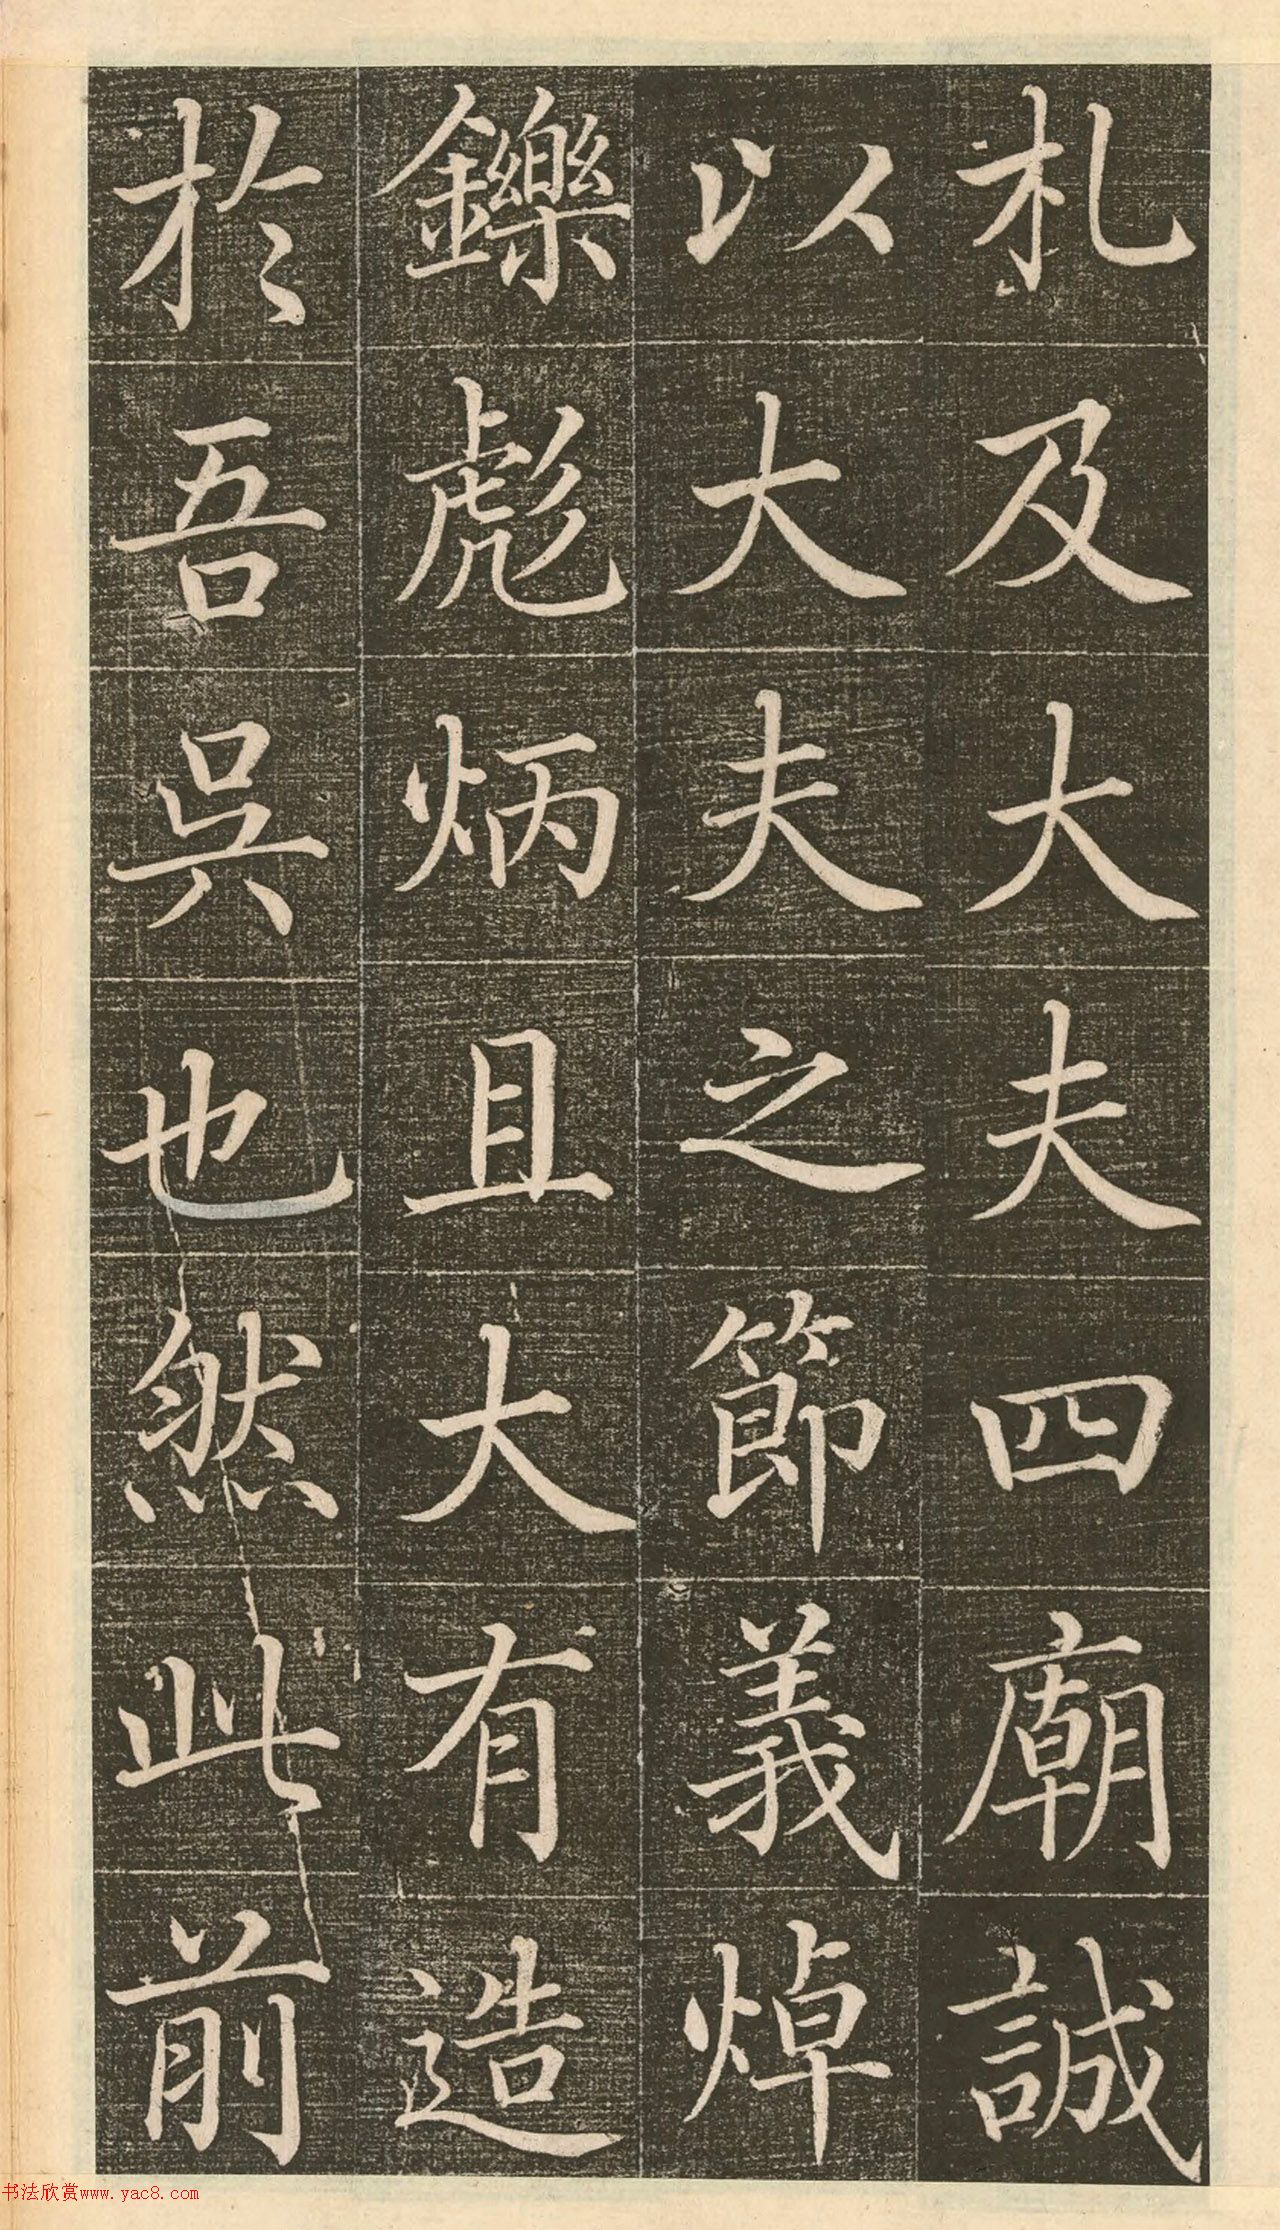 札及大夫四廟誠
以大夫之節義焯
鑠彪炳且大有造
於吾吳也然此前
书法欣赏www.yac8.com